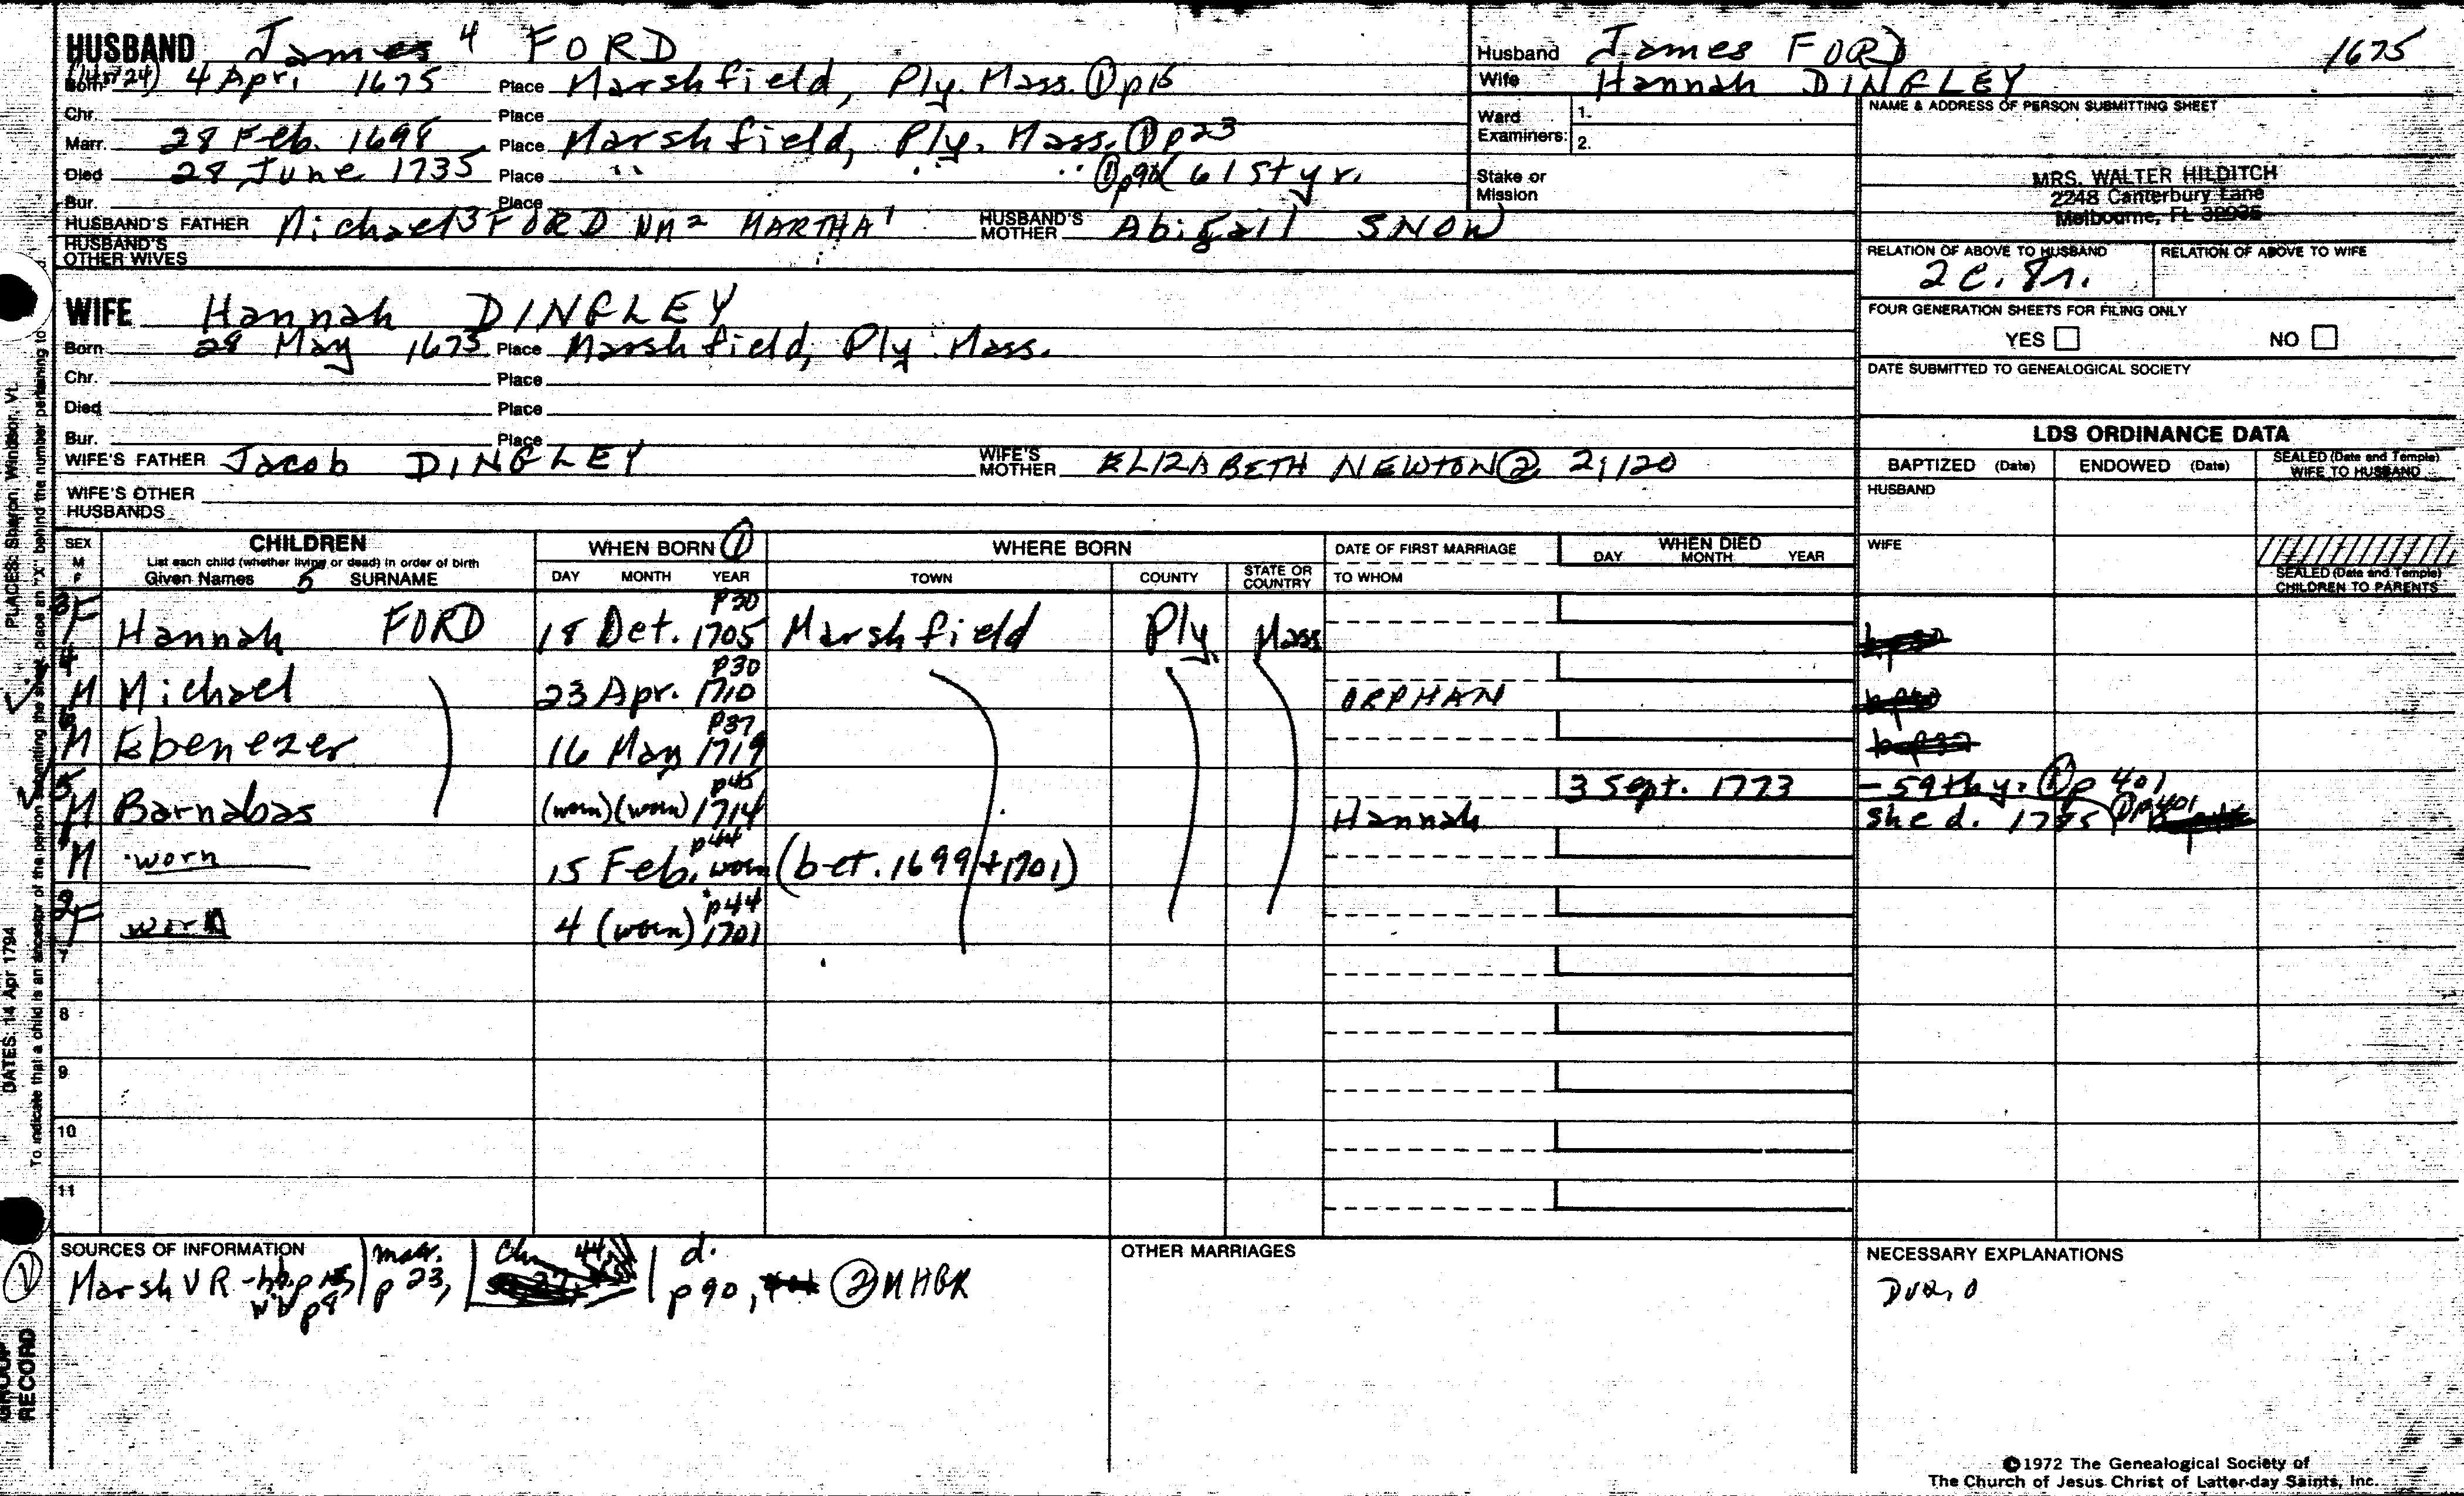 HUSBAND James 4 FORD
Born 4 Apr. 1675 Place Marshfield, Ply. Mass. ① p15
Chr. Place
Marr. 28 Feb. 1698 Place Marshfield, Ply. Mass. ① p23
Died 28 June 1735 Place " " " ① p90 (61st yr.
Bur. Place
HUSBAND'S FATHER Michael 3 FORD MARTHA HUSBAND'S MOTHER Abigail SNOW
HUSBAND'S OTHER WIVES
Husband James FORD 1675
Wife Hannah DINGLEY
Ward Examiners: 1.
2.
Stake or Mission
NAME & ADDRESS OF PERSON SUBMITTING SHEET
MRS. WALTER HILDITCH
2248 Canterbury Lane
Melbourne, FL 32935
RELATION OF ABOVE TO HUSBAND RELATION OF ABOVE TO WIFE
2c. 8r.
FOUR GENERATION SHEETS FOR FILING ONLY
YES NO
DATE SUBMITTED TO GENEALOGICAL SOCIETY
WIFE Hannah DINGLEY
Born 28 May 1675 Place Marshfield, Ply. Mass.
Chr. Place
Died Place
Bur. Place
WIFE'S FATHER Jacob DINGLEY WIFE'S MOTHER ELIZABETH NEWTON ② 2;120
WIFE'S OTHER HUSBANDS
LDS ORDINANCE DATA
BAPTIZED (Date) ENDOWED (Date) SEALED (Date and Temple) WIFE TO HUSBAND
HUSBAND
WIFE
SEALED (Date and Temple) CHILDREN TO PARENTS
SEX M F CHILDREN WHEN BORN ① WHERE BORN DATE OF FIRST MARRIAGE WHEN DIED
List each child (whether living or dead) in order of birth
Given Names 5 SURNAME DAY MONTH YEAR TOWN COUNTY STATE OR COUNTRY TO WHOM DAY MONTH YEAR
p30
3 F Hannah FORD 18 Oct. 1705 Marshfield Ply. Mass
p30
4 M Michael 23 Apr. 1710 ORPHAN
p37
6 M Ebenezer 16 May 1719
p45 3 Sept. 1773 -59th y. ① p 401
5 M Barnabas (worn)(worn) 1714 Hannah she d. ① p401
p44
1 M worn 15 Feb. worn (bet. 1699 + 1701)
p44
2 F worn 4 (worn) 1701
7
8
9
10
11
SOURCES OF INFORMATION OTHER MARRIAGES NECESSARY EXPLANATIONS
① Marsh VR - hbp 15, wbp8 | marr. p 23, | Ch 44 | d. p 90, ②
PLACES: Sharon, Windsor, Vt.
DATES: 14 Apr 1794
To indicate that a child is an ancestor of the person submitting the sheet, place an "X" behind the number pertaining to
GROUP RECORD
©1972 The Genealogical Society of
The Church of Jesus Christ of Latter-day Saints, Inc.